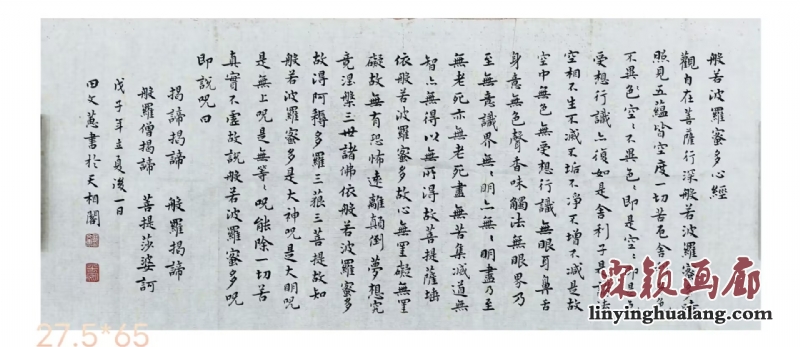 般若波羅蜜多心經
觀自在菩薩行深般若波羅蜜
照見五蘊皆空度一切苦厄舍色
不異色空〻不異色〻即是空〻即是
受想行識亦復如是舍利子是法
空相不生不滅不垢不淨不增不減是故
空中無色無受想行識無眼耳鼻舌
身意無色聲香味觸法無眼界乃
至無意識界無〻明亦無〻明盡乃至
無老死亦無老死盡無苦集滅道無
智亦無得以無所得故菩提薩埵
依般若波羅蜜多故心無罣礙無罣
礙故無有恐怖遠離顛倒夢想究
竟涅槃三世諸佛依般若波羅蜜多
故得阿耨多羅三藐三菩提故知
般若波羅蜜多是大神呪是大明呪
是無上呪是無等〻呪能除一切苦
真實不虛故說般若波羅蜜多呪
即說呪曰
揭諦揭諦 般羅揭諦
般羅僧揭諦 菩提莎婆訶
戊子年立夏後一日
田文惠書於天相閣
霖颖画廊
linyinghualang.com
27.5*65